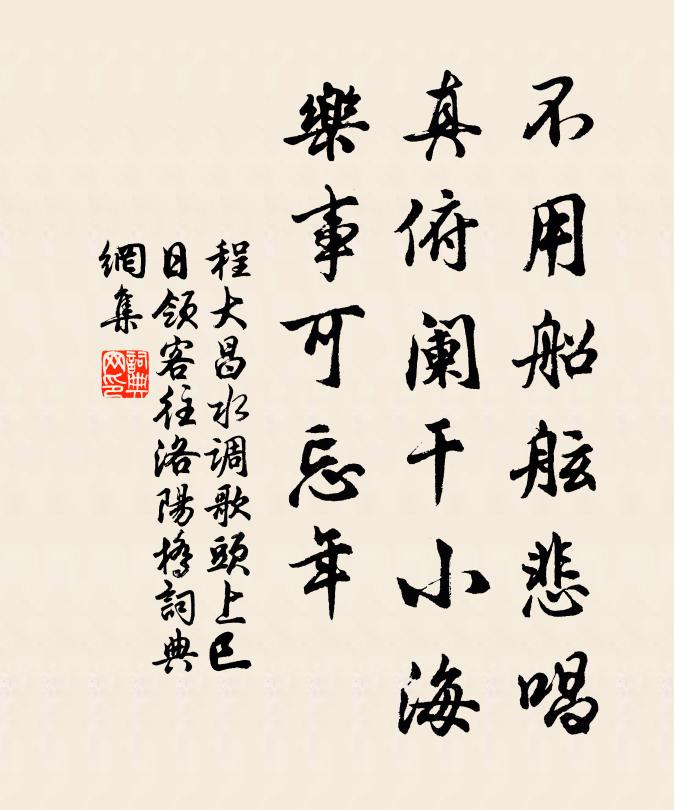 不用船舷悲唱
真俯阑干小海
樂事可忘年
程大昌水调歌頭上巳
日領客往洛陽橋詞典
網集
詞典
网印